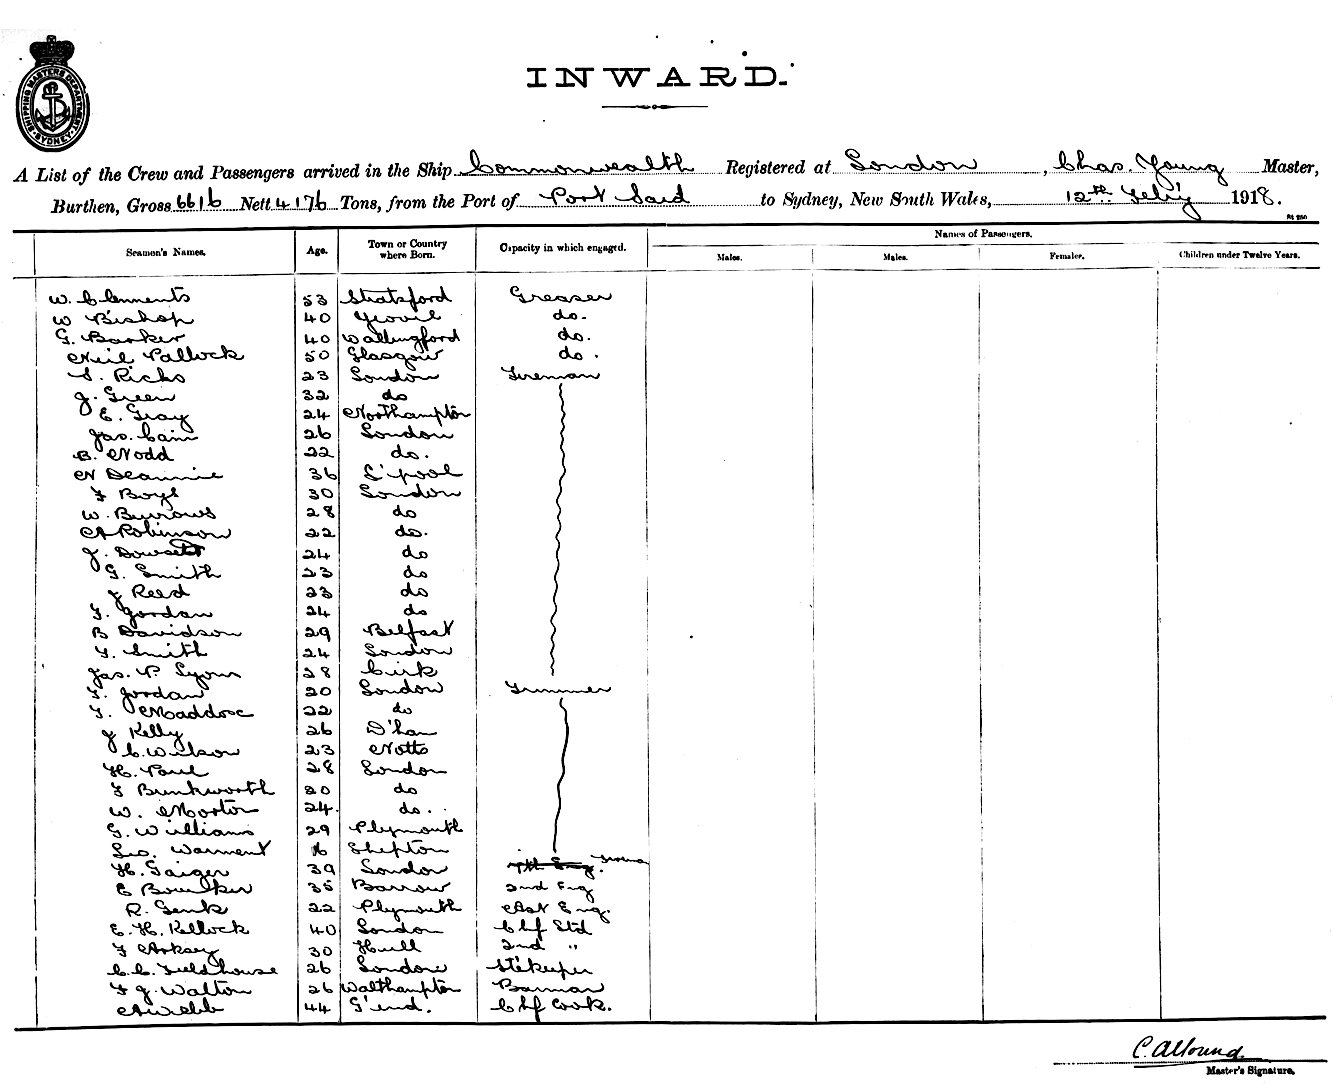 SHIPPING MASTERS DEPARTMENT
SYDNEY
INWARD.
A List of the Crew and Passengers arrived in the Ship Commonwealth Registered at London, Chas. Young Master,
Burthen, Gross 6616 Nett 4176 Tons, from the Port of Port Said to Sydney, New South Wales, 12th Feb'y 1918.
Seamen's Names. Age. Town or Country where Born. Capacity in which engaged. Names of Passengers.
Males. Males. Females. Children under Twelve Years.
W. Clements 53 Stratsford Greaser
W Bishop 40 Yeovil do.
G. Barker 40 Wallingford do.
Neil Pallock 50 Glasgow do.
S. Ricks 23 London Fireman
J. Green 32 do
E. Gray 24 Northampton
Jas. Cain 26 London
B. Nodd 22 do.
N 36 L'pool
F Boys 30 London
W. Burrows 28 do
A Robinson 22 do.
J. Dowsett 24 do
G. Smith 23 do
J Reed 23 do
F. Jordan 24 do
B Davidson 29 Belfast
F. Smith 24 London
Jas. P Lyons 28 Cork
F. Jordan 20 London Trimmer
F. Maddox 22 do
J Kelly 26 D'han
C. Wilson 23 Notts
H. Paul 28 London
F Bunkworth 20 do
W. Morton 24 do.
G. Williams 29 Plymouth
Geo. Warment 16 Shepton
H. Gaiger 39 London
E Boulker 35 Barrow 2nd Eng
R. Genk 22 Plymouth Asst Eng.
E. H. Kellock 40 London Chf Std
F Arksey 30 Hull 2nd "
C. C. Fieldhouse 26 London St'keeper
F J. Walton 26 Walthampton Barman
A Webb 44 G'end. Chf Cook.
Master's Signature.